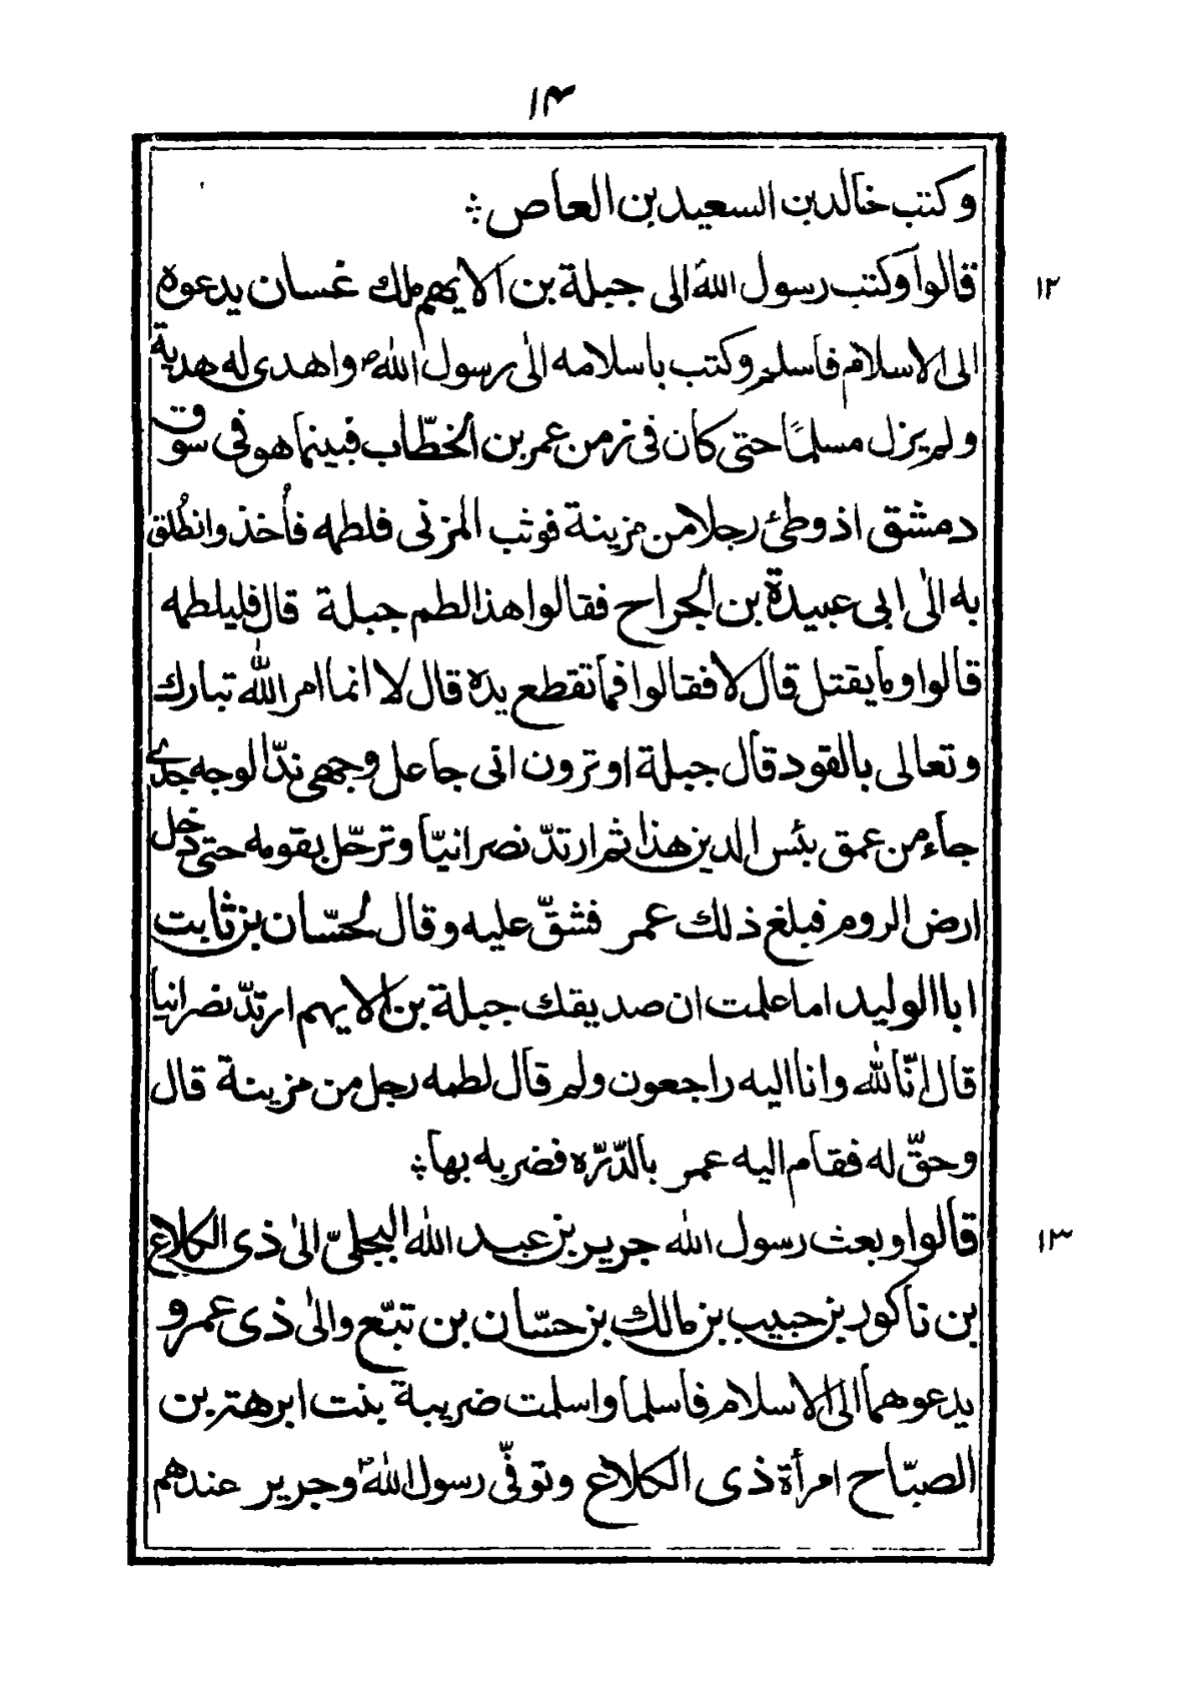 ١٤
وكتب خالد بن السعيد بن العاص ❊
١٢
قالوا وكتب رسول اللهؐ الى جبلة بن الايهم ملك غسان يدعوه
الى الاسلام فأسلم وكتب باسلامه الى رسول اللهؐ واهدى له هدية
ولم يزل مسلمًا حتى كان فى زمن عمر بن الخطّاب فبينما هو فى سوق
دمشق اذ وطئ رجلا من مزينة فوثب المزنى فلطمه فأُخذ وانطُلق
به الى ابى عبيدة بن الجراح فقالوا هذا لطم جبلة قال فليلطمه
قالوا وما يقتل قال لا فقالوا فما تقطع يده قال لا انما امر الله تبارك
وتعالى بالقود قال جبلة او ترون انى جاعل وجهى ندّا لوجه جدى
جاء من عمق بئس الدين هذا ثم ارتدّ نصرانيّا وترحّل بقومه حتى دخل
ارض الروم فبلغ ذلك عمر فشقّ عليه وقال لحسّان بن ثابت
ابا الوليد اما علمت ان صديقك جبلة بن الايهم ارتدّ نصرانيا
قال انّا لله وانا اليه راجعون ولم قال لطمه رجل من مزينة قال
وحقّ له فقام اليه عمر بالدّرّه فضربه بها ❊
١٣
قالوا وبعث رسول الله جرير بن عبد الله البجلىّ الى ذى الكلاع
بن ناكور بن حبيب بن مالك بن حسّان بن تبّع والى ذى عمرو
يدعوهما الى الاسلام فأسلما واسلمت ضريبة بنت ابرهة بن
الصبّاح امرأة ذى الكلاع وتوفّى رسول اللهؐ وجرير عندهم